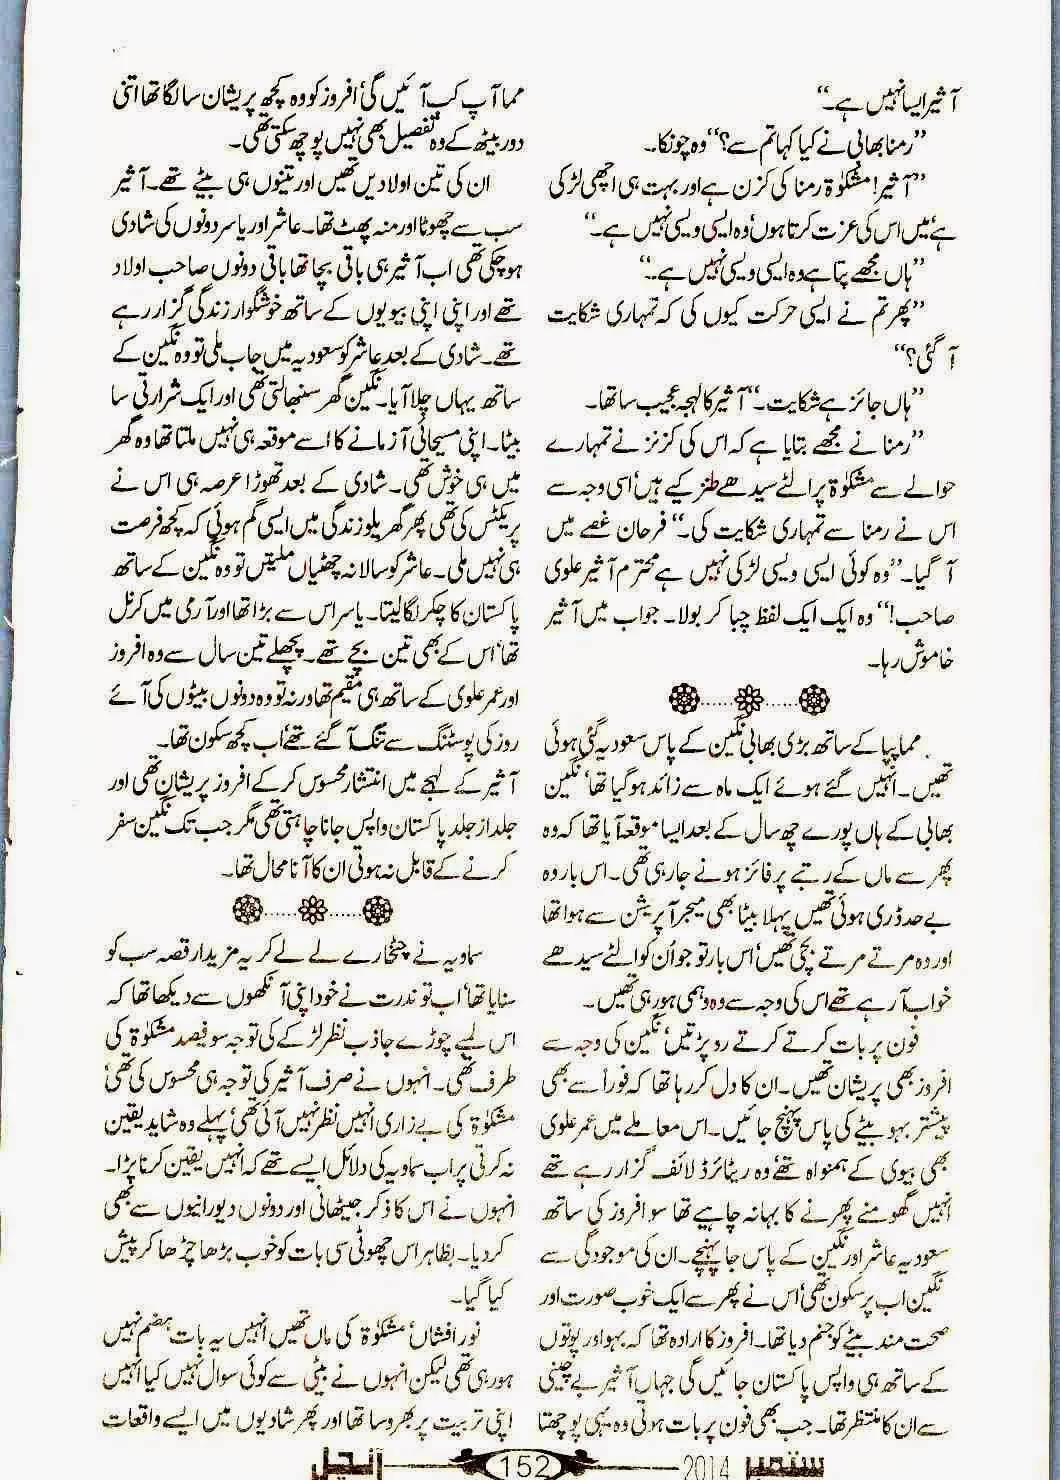 آشیر ایسا نہیں ہے۔“
”رمنا بھابی نے کیا کہا تم سے؟“ وہ چونکا۔
”آشیر! مشکوٰۃ رمنا کی کزن ہے اور بہت ہی اچھی لڑکی
ہے‘ میں اس کی عزت کرتا ہوں‘ وہ ایسی ویسی نہیں ہے۔“
”ہاں مجھے پتا ہے وہ ایسی ویسی نہیں ہے۔“
”پھر تم نے ایسی حرکت کیوں کی کہ تمہاری شکایت
آ گئی؟“
”ہاں جائز ہے شکایت۔“ آشیر کا لہجہ عجیب سا تھا۔
”رمنا نے مجھے بتایا ہے کہ اس کی کزنز نے تمہارے
حوالے سے مشکوٰۃ پر الٹے سیدھے طنز کیے ہیں‘ اسی وجہ سے
اس نے رمنا سے تمہاری شکایت کی۔“ فرحان غصے میں
آ گیا۔ ”وہ کوئی ایسی ویسی لڑکی نہیں ہے محترم آشیر علوی
صاحب!“ وہ ایک ایک لفظ چبا کر بولا۔ جواب میں آشیر
خاموش رہا۔
مما پپا کے ساتھ بڑی بھابی نگین کے پاس سعودیہ گئی ہوئی
تھیں۔ انہیں گئے ہوئے ایک ماہ سے زائد ہو گیا تھا‘ نگین
بھابی کے ہاں پورے چھ سال کے بعد ایسا موقعہ آیا تھا کہ وہ
پھر سے ماں کے رتبے پر فائز ہونے جا رہی تھی۔ اس بار وہ
بے حد ڈری ہوئی تھیں پہلا بیٹا بھی میجر آپریشن سے ہوا تھا
اور وہ مرتے مرتے بچی تھیں‘ اس بار تو جو اُن کو الٹے سیدھے
خواب آ رہے تھے اس کی وجہ سے وہ وہمی ہو رہی تھیں۔
فون پر بات کرتے کرتے رو پڑتیں‘ نگین کی وجہ سے
افروز بھی پریشان تھیں۔ ان کا دل کر رہا تھا کہ فوراً سے بھی
پیشتر بہو بیٹے کی پاس پہنچ جائیں۔ اس معاملے میں عمر علوی
بھی بیوی کے ہمنواہ تھے‘ وہ ریٹائرڈ لائف گزار رہے تھے
انہیں گھومنے پھرنے کا بہانہ چاہیے تھا سو افروز کی ساتھ
سعودیہ عاشر اور نگین کے پاس جا پہنچے۔ ان کی موجودگی سے
نگین اب پرسکون تھی‘ اس نے پھر سے ایک خوب صورت اور
صحت مند بیٹے کو جنم دیا تھا۔ افروز کا ارادہ تھا کہ بہو اور پوتوں
کے ساتھ ہی واپس پاکستان جائیں گی جہاں آشیر بے چینی
سے ان کا منتظر تھا۔ جب بھی فون پر بات ہوتی وہ یہی پوچھتا
مما آپ کب آئیں گی‘ افروز کو وہ کچھ پریشان سا لگا تھا اتنی
دور بیٹھ کے وہ تفصیل بھی نہیں پوچھ سکتی تھی۔
ان کی تین اولادیں تھیں اور تینوں ہی بیٹے تھے۔ آشیر
سب سے چھوٹا اور منہ پھٹ تھا۔ عاشر اور یاسر دونوں کی شادی
ہو چکی تھی اب آشیر ہی باقی بچا تھا باقی دونوں صاحب اولاد
تھے اور اپنی اپنی بیویوں کے ساتھ خوشگوار زندگی گزار رہے
تھے۔ شادی کے بعد عاشر کو سعودیہ میں جاب ملی تو وہ نگین کے
ساتھ یہاں چلا آیا۔ نگین گھر سنبھالتی تھی اور ایک شرارتی سا
بیٹا۔ اپنی مسیحائی آزمانے کا اسے موقعہ ہی نہیں ملتا تھا وہ گھر
میں ہی خوش تھی۔ شادی کے بعد تھوڑا عرصہ ہی اس نے
پریکٹس کی تھی پھر گھریلو زندگی میں ایسی گم ہوئی کہ کچھ فرصت
ہی نہیں ملی۔ عاشر کو سالانہ چھٹیاں ملیتیں تو وہ نگین کے ساتھ
پاکستان کا چکر لگا لیتا۔ یاسر اس سے بڑا تھا اور آرمی میں کرنل
تھا‘ اس کے بھی تین بچے تھے۔ پچھلے تین سال سے وہ افروز
اور عمر علوی کے ساتھ ہی مقیم تھا ورنہ تو وہ دونوں بیٹوں کی آئے
روز کی پوسٹنگ سے تنگ آ گئے تھے‘ اب کچھ سکون تھا۔
آشیر کے لہجے میں انتشار محسوس کر کے افروز پریشان تھی اور
جلد از جلد پاکستان واپس جانا چاہتی تھی مگر جب تک نگین سفر
کرنے کے قابل نہ ہوتی ان کا آنا محال تھا۔
سماویہ نے چٹخارے لے لے کر یہ مزیدار قصہ سب کو
سنایا تھا‘ اب تو ندرت نے خود اپنی آنکھوں سے دیکھا تھا کہ
اس لمبے چوڑے جاذب نظر لڑکے کی توجہ سو فیصد مشکوٰۃ کی
طرف تھی۔ انہوں نے صرف آشیر کی توجہ ہی محسوس کی تھی‘
مشکوٰۃ کی بے زاری انہیں نظر نہیں آئی تھی‘ پہلے وہ شاید یقین
نہ کرتی پر اب سماویہ کی دلائل ایسے تھے کہ انہیں یقین کرنا پڑا۔
انہوں نے اس کا ذکر جیٹھانی اور دونوں دیورانیوں سے بھی
کر دیا۔ بظاہر اس چھوٹی سی بات کو خوب بڑھا چڑھا کر پیش
کیا گیا۔
نور افشاں‘ مشکوٰۃ کی ماں تھیں انہیں یہ بات ہضم نہیں
ہو رہی تھی لیکن انہوں نے بیٹی سے کوئی سوال نہیں کیا انہیں
اپنی تربیت پر بھروسا تھا اور پھر شادیوں میں ایسے واقعات
ستمبر 2014 152 آنچل